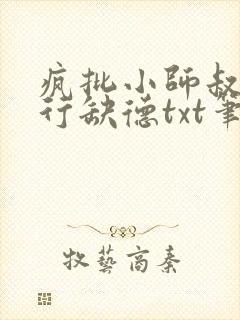 疯批小師叔
行缺德txt筆
牧藝高秦